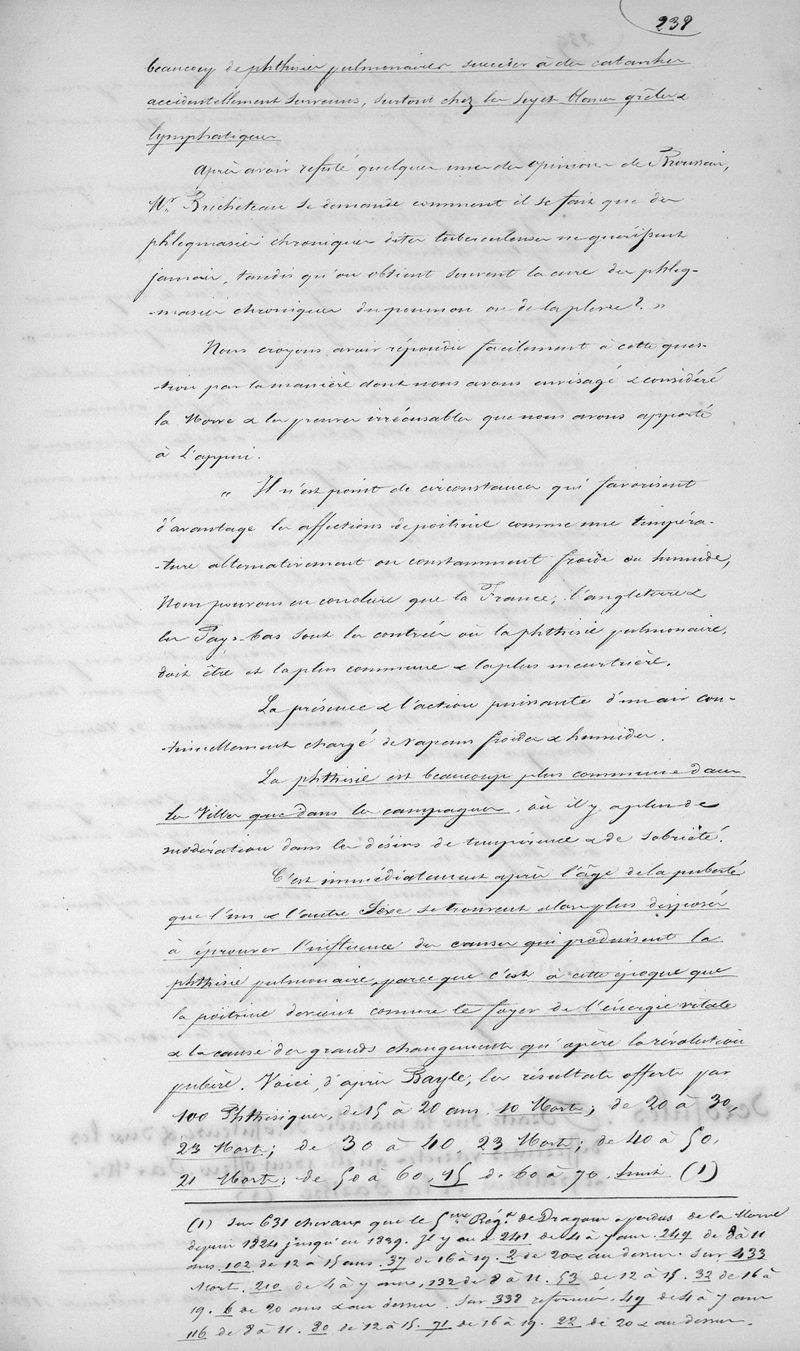 239
beaucoup de phthisies pulmonaires succéder à des catarrhes
accidentellement survenus, surtout chez les sujets blancs grêles &
lymphatiques
Après avoir refuté quelques unes des opinions de Broussais,
Mr. Bricheteau se demande comment il se fait que des
phlegmasies chroniques dites tuberculeuses ne guérissent
jamais, tandis qu'on obtient souvent la cure des phleg-
-masies chroniques du poumon ou de la plèvre? "
Nous croyons avoir répondu facilement à cette ques-
-tion par la manière dont nous avons envisagé & considéré
la Morve & les preuves irrécusables que nous avons apporté
à l'appui.
" Il n'est point de circonstances qui favorisent
d'avantage les affections de poitrine comme une tempéra-
-ture alternativement ou constamment froide ou humide,
Nous pouvons en conclure que la France, l'angleterre &
les Pays-bas sont les contrées où la phthisie pulmonaire,
doit être et la plus commune & la plus meurtrière.
La présence & l'action puissante d'un air con-
-tinuellement chargé de vapeurs froides & humides.
La phthisie est beaucoup plus commune dans
les Villes que dans les campagnes, où il y a plus de
modération dans les désirs de tempérence & de sobriété.
C'est immédiatement après l'âge de la puberté
que l'un & l'autre Sexe se trouvent alors plus disposés
à éprouver l'influence des causes qui produisent la
phthisie pulmonaire, parce que c'est à cette époque que
la poitrine devient comme le foyer de l'énergie vitale
& la cause des grands changements qu'opère la révolution
pubère. Voici, d'après Bayle, les résultats offerts par
100 Phthisiques, de 15 à 20 ans, 10 Morts; de 20 à 30,
23 Morts; de 30 à 40 23 Morts; de 40 à 50,
21 Morts; de 50 à 60, 15 de 60 à 70, huit (1)
(1) Sur 631 chevaux que le 5me Régt de Dragons a perdus de la Morve
depuis 1824 jusqu'en 1839. Il y en a 241 de 4 à 7 ans. 249 de 8 à 11
ans. 102 de 12 à 15 ans. 37 de 16 à 19. 2 de 20 & au dessus. Sur 433
Mort. 210 de 4 à 7 ans, 132 de 8 à 11. 53 de 12 à 15. 32 de 16 à
19. 6 de 20 ans & au dessus. Sur 338 réformés. 49 de 4 à 7 ans
116 de 8 à 11. 80 de 12 à 15. 71 de 16 à 19. 22 de 20 & au dessus.